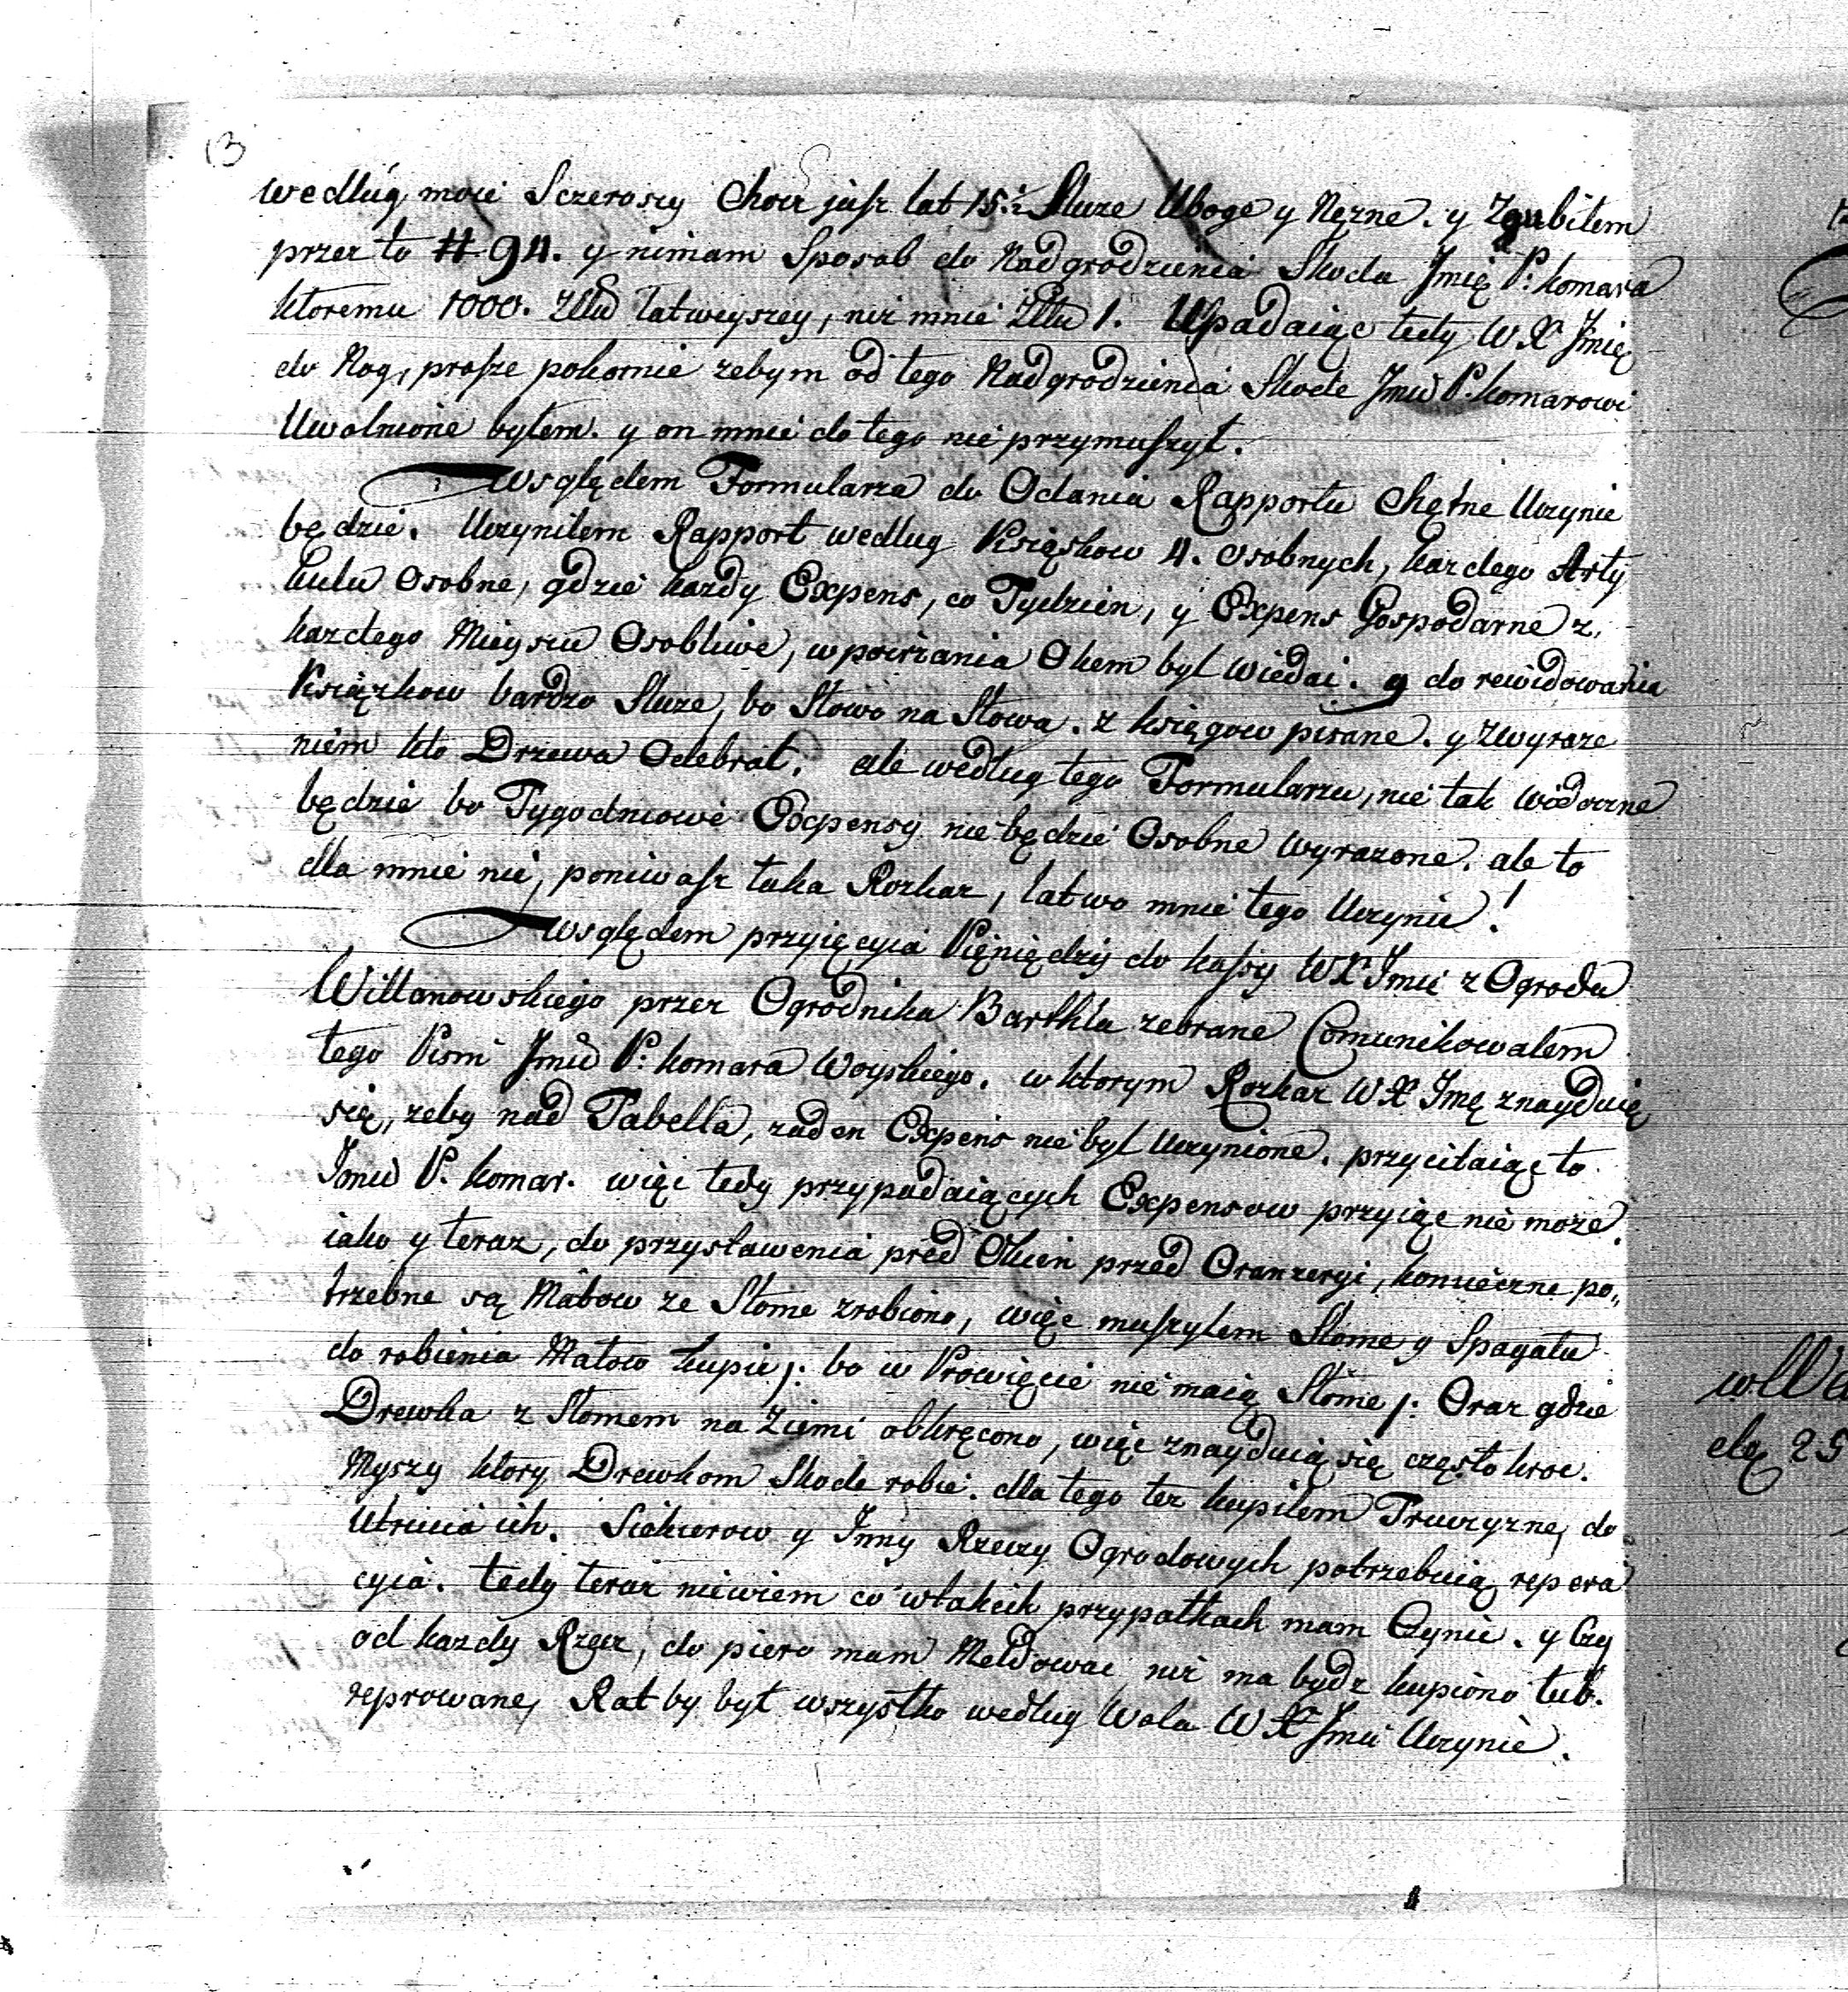 13
według moie Sczeroscy Choır jasz lat 15½ Sluze Uboge y Nęzne. y Zgubilem
przez to # 94. y nimam Sposob do Nadgrodzenia Skoda Jmię P: Komara
Ktoremu 1000. Złłu łatweyszey, niz mnie Złłu 1. Upadaiąc tedy W X Jmię
do Nog, prosze pokornie zebym od tego Nadgrodzienia Skode Jmu P. Komarowi
Uwolnione bylem. y on mnie do tego nie przymuszyl.
Względem Formularza do Odania Rapportu Chętne Uczynie
będzie. Uczynilem Rapport według Książkow 4. osobnych, kazdego Arty
kulu osobne, gdzie kazdy Expens, co Tydzien, y Expens Gospodarne z
kazdego Mieyscu Osobliwe, w poirzania Okem byl wiedai. y do rewidowania
Książkow bardzo Sluze, bo Słowo na Słowa. z księgow pisane. y zwyraze
niem kto Drzewa Odebrał. ale według tego Formularzu, nie tak widoczne
będzie bo Tygodniowe Expensy nie będzie Osobne wyrazone. ale to
dla mnie nie, poniwasz taka Rozkaz, latwo mnie tego Uczynie!
Względem przyięcyia Pięniędzy do kassy W X Jmci z Ogrodu
Willanowskiego przez Ogrodnika Barthla zebrane Comunikowalem
tego Pismi Jmu P: Komara Woyskiego. w ktorym Rozkaz W X Jmę znayduię
się, zeby nad Tabella, zaden Expens nie byl Uczynione. przycitaiąc to
Jmu P. Komar. więc tedy przypadaiących Expensow przyiąc nie moze.
iako y teraz, do przystawenia pred Okien przed Oranzeryi, konieczne po„
trzebne są Matow ze Słome zrobiono, więc muszylem Słome y Spagatu
do robienia Matow kupie /: bo w Prowięcie nie maią Słome /: Oraz gdzie
Drewka z Słomem na Ziemi obkręcono, więc znayduią się często kroc.
Myszy ktory Drewkom Skode robie. dla tego tez kupilem Trucyzne, do
Utrucia ich. Siekierow y Inny Rzeczy Ogrodowych potrzebuią repera
cyia. tedy teraz niewiem co w takich przypatkach mam Czynie. y Czy
od kazdy Rzecz, do piero mam Meldowac niz ma bydz kupiono lub.
reprowane, Rat by był wszystko według Wola W X Jmci Uczynie.